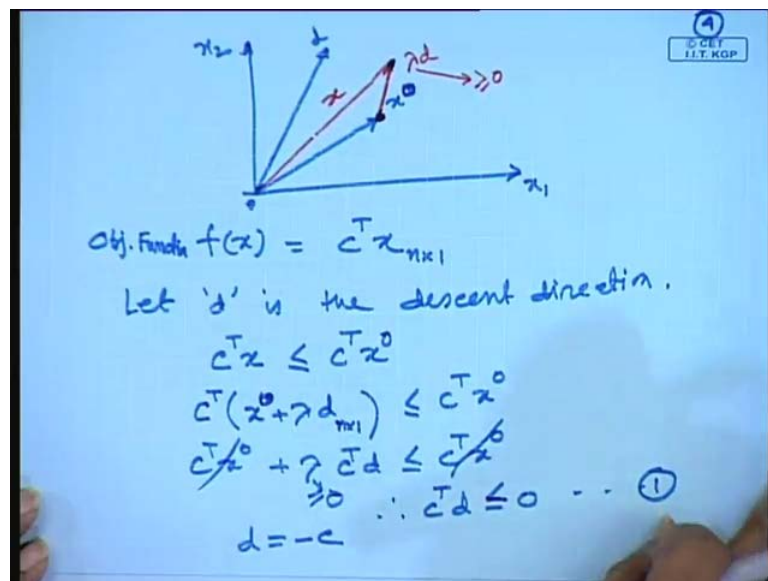 4
© CET
I.I.T. KGP
x₂
d
λd → ≥0
x
x⁰
0
x₁
Obj. Functn f(x) = cᵀx_{n×1}
Let 'd' is the descent direction.
cᵀx ≤ cᵀx⁰
cᵀ(x⁰+λd_{n×1}) ≤ cᵀx⁰
cᵀx⁰ + λcᵀd ≤ cᵀx⁰
≥0 ∴ cᵀd ≤ 0 -- ①
d = -c